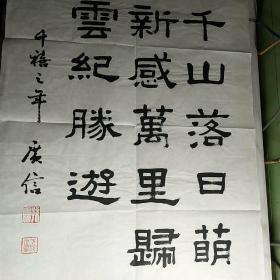 千山落日萌
新感萬里歸
雲紀勝遊
千禧之年
廣信